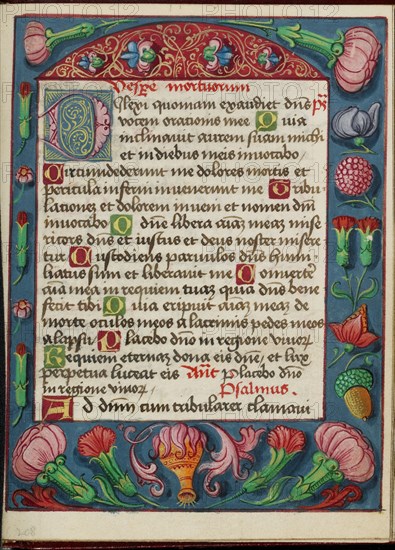 Vespe mortuorum
Dilexi quoniam exaudiet dns ps
vocem orationis mee Quia
inclinavit aurem suam michi
et in diebus meis invocabo
Circumdederunt me dolores mortis et
pericula inferni invenerunt me Tribu
lationez et dolorem inveni et nomen dni
invocabo O dne libera aiaz meaz mise
ricors dns et iustus et deus noster misere
tur Custodiens parvulos dns humi
liatus sum et liberavit me Convertere
aia mea in requiem tuaz quia dns bene
fecit tibi Quia eripuit aiaz meaz de
morte oculos meos a lacrimis pedes meos
a lapsu Placebo dno in regione vivor
Requiem eternaz dona eis dne et lux
perpetua luceat eis Ant Placebo dno
in regione vivor Psalmus
Ad dnm cum tribularer clamavi
208
PHOTO12